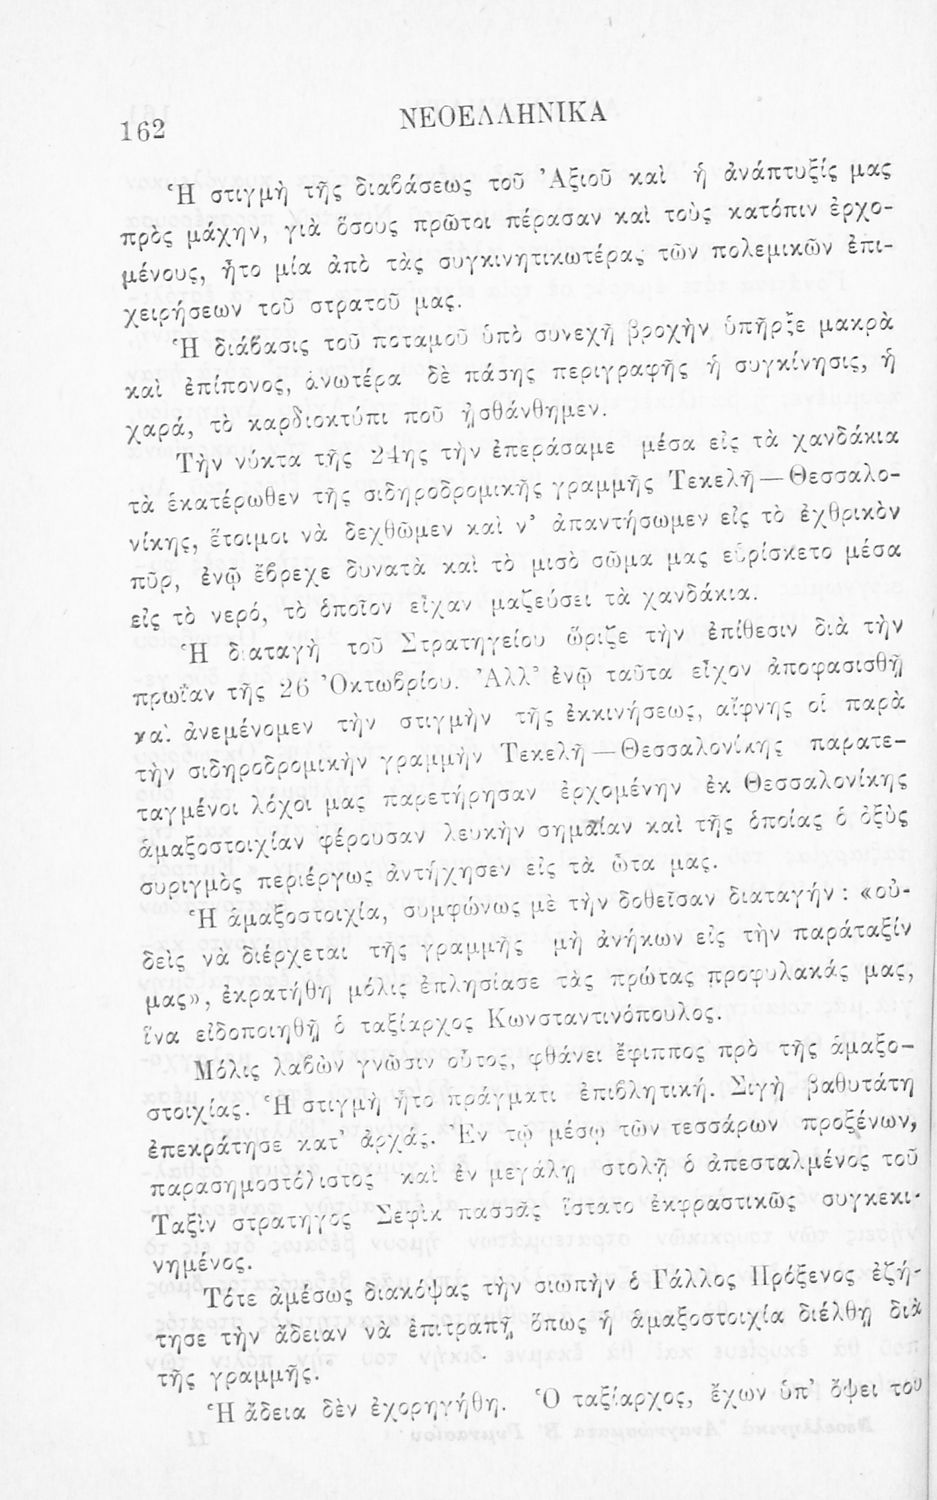 162
ΝΕΟΕΛΛΗΝΙΚΑ
Ἡ στιγμὴ τῆς διαβάσεως τοῦ Ἀξιοῦ καὶ ἡ ἀνάπτυξίς μας
πρὸς μάχην, γιὰ ὅσους πρῶτοι πέρασαν καὶ τοὺς κατόπιν ἐρχο-
μένους, ἦτο μία ἀπὸ τὰς συγκινητικωτέρας τῶν πολεμικῶν ἐπι-
χειρήσεων τοῦ στρατοῦ μας.
Ἡ διάβασις τοῦ ποταμοῦ ὑπὸ συνεχῆ βροχὴν ὑπῆρξε μακρὰ
καὶ ἐπίπονος, ἀνωτέρα δὲ πάσης περιγραφῆς ἡ συγκίνησις, ἡ
χαρά, τὸ καρδιοκτύπι ποῦ ᾐσθάνθημεν.
Τὴν νύκτα τῆς 24ης τὴν ἐπεράσαμε μέσα εἰς τὰ χανδάκια
τὰ ἑκατέρωθεν τῆς σιδηροδρομικῆς γραμμῆς Τεκελῆ — Θεσσαλο-
νίκης, ἕτοιμοι νὰ δεχθῶμεν καὶ ν' ἀπαντήσωμεν εἰς τὸ ἐχθρικὸν
πῦρ, ἐνῷ ἔβρεχε δυνατὰ καὶ τὸ μισὸ σῶμα μας εὑρίσκετο μέσα
εἰς τὸ νερό, τὸ ὁποῖον εἶχαν μαζεύσει τὰ χανδάκια.
Ἡ διαταγὴ τοῦ Στρατηγείου ὥριζε τὴν ἐπίθεσιν διὰ τὴν
πρωΐαν τῆς 26 Ὀκτωβρίου. Ἀλλ' ἐνῷ ταῦτα εἶχον ἀποφασισθῆ
καὶ ἀνεμένομεν τὴν στιγμὴν τῆς ἐκκινήσεως, αἴφνης οἱ παρὰ
τὴν σιδηροδρομικὴν γραμμὴν Τεκελῆ — Θεσσαλονίκης παρατε-
ταγμένοι λόχοι μας παρετήρησαν ἐρχομένην ἐκ Θεσσαλονίκης
ἁμαξοστοιχίαν φέρουσαν λευκὴν σημαίαν καὶ τῆς ὁποίας ὁ ὀξὺς
συριγμὸς περιέργως ἀντήχησεν εἰς τὰ ὦτα μας.
Ἡ ἁμαξοστοιχία, συμφώνως μὲ τὴν δοθεῖσαν διαταγήν : «οὐ-
δεὶς νὰ διέρχεται τῆς γραμμῆς μὴ ἀνήκων εἰς τὴν παράταξίν
μας», ἐκρατήθη μόλις ἐπλησίασε τὰς πρώτας προφυλακάς μας,
ἵνα εἰδοποιηθῇ ὁ ταξίαρχος Κωνσταντινόπουλος.
Μόλις λαβὼν γνῶσιν οὗτος, φθάνει ἔφιππος πρὸ τῆς ἁμαξο-
στοιχίας. Ἡ στιγμὴ ἦτο πράγματι ἐπιβλητική. Σιγὴ βαθυτάτη
ἐπεκράτησε κατ' ἀρχάς. Ἐν τῷ μέσῳ τῶν τεσσάρων προξένων,
παρασημοστόλιστος καὶ ἐν μεγάλῃ στολῇ ὁ ἀπεσταλμένος τοῦ
Ταξὶν στρατηγὸς Σεφὶκ πασσᾶς ἵστατο ἐκφραστικῶς συγκεκι-
νημένος.
Τότε ἀμέσως διακόψας τὴν σιωπὴν ὁ Γάλλος Πρόξενος ἐζή-
τησε τὴν ἄδειαν νὰ ἐπιτραπῇ, ὅπως ἡ ἁμαξοστοιχία διέλθῃ διὰ
τῆς γραμμῆς.
Ἡ ἄδεια δὲν ἐχορηγήθη. Ὁ ταξίαρχος, ἔχων ὑπ' ὄψει του